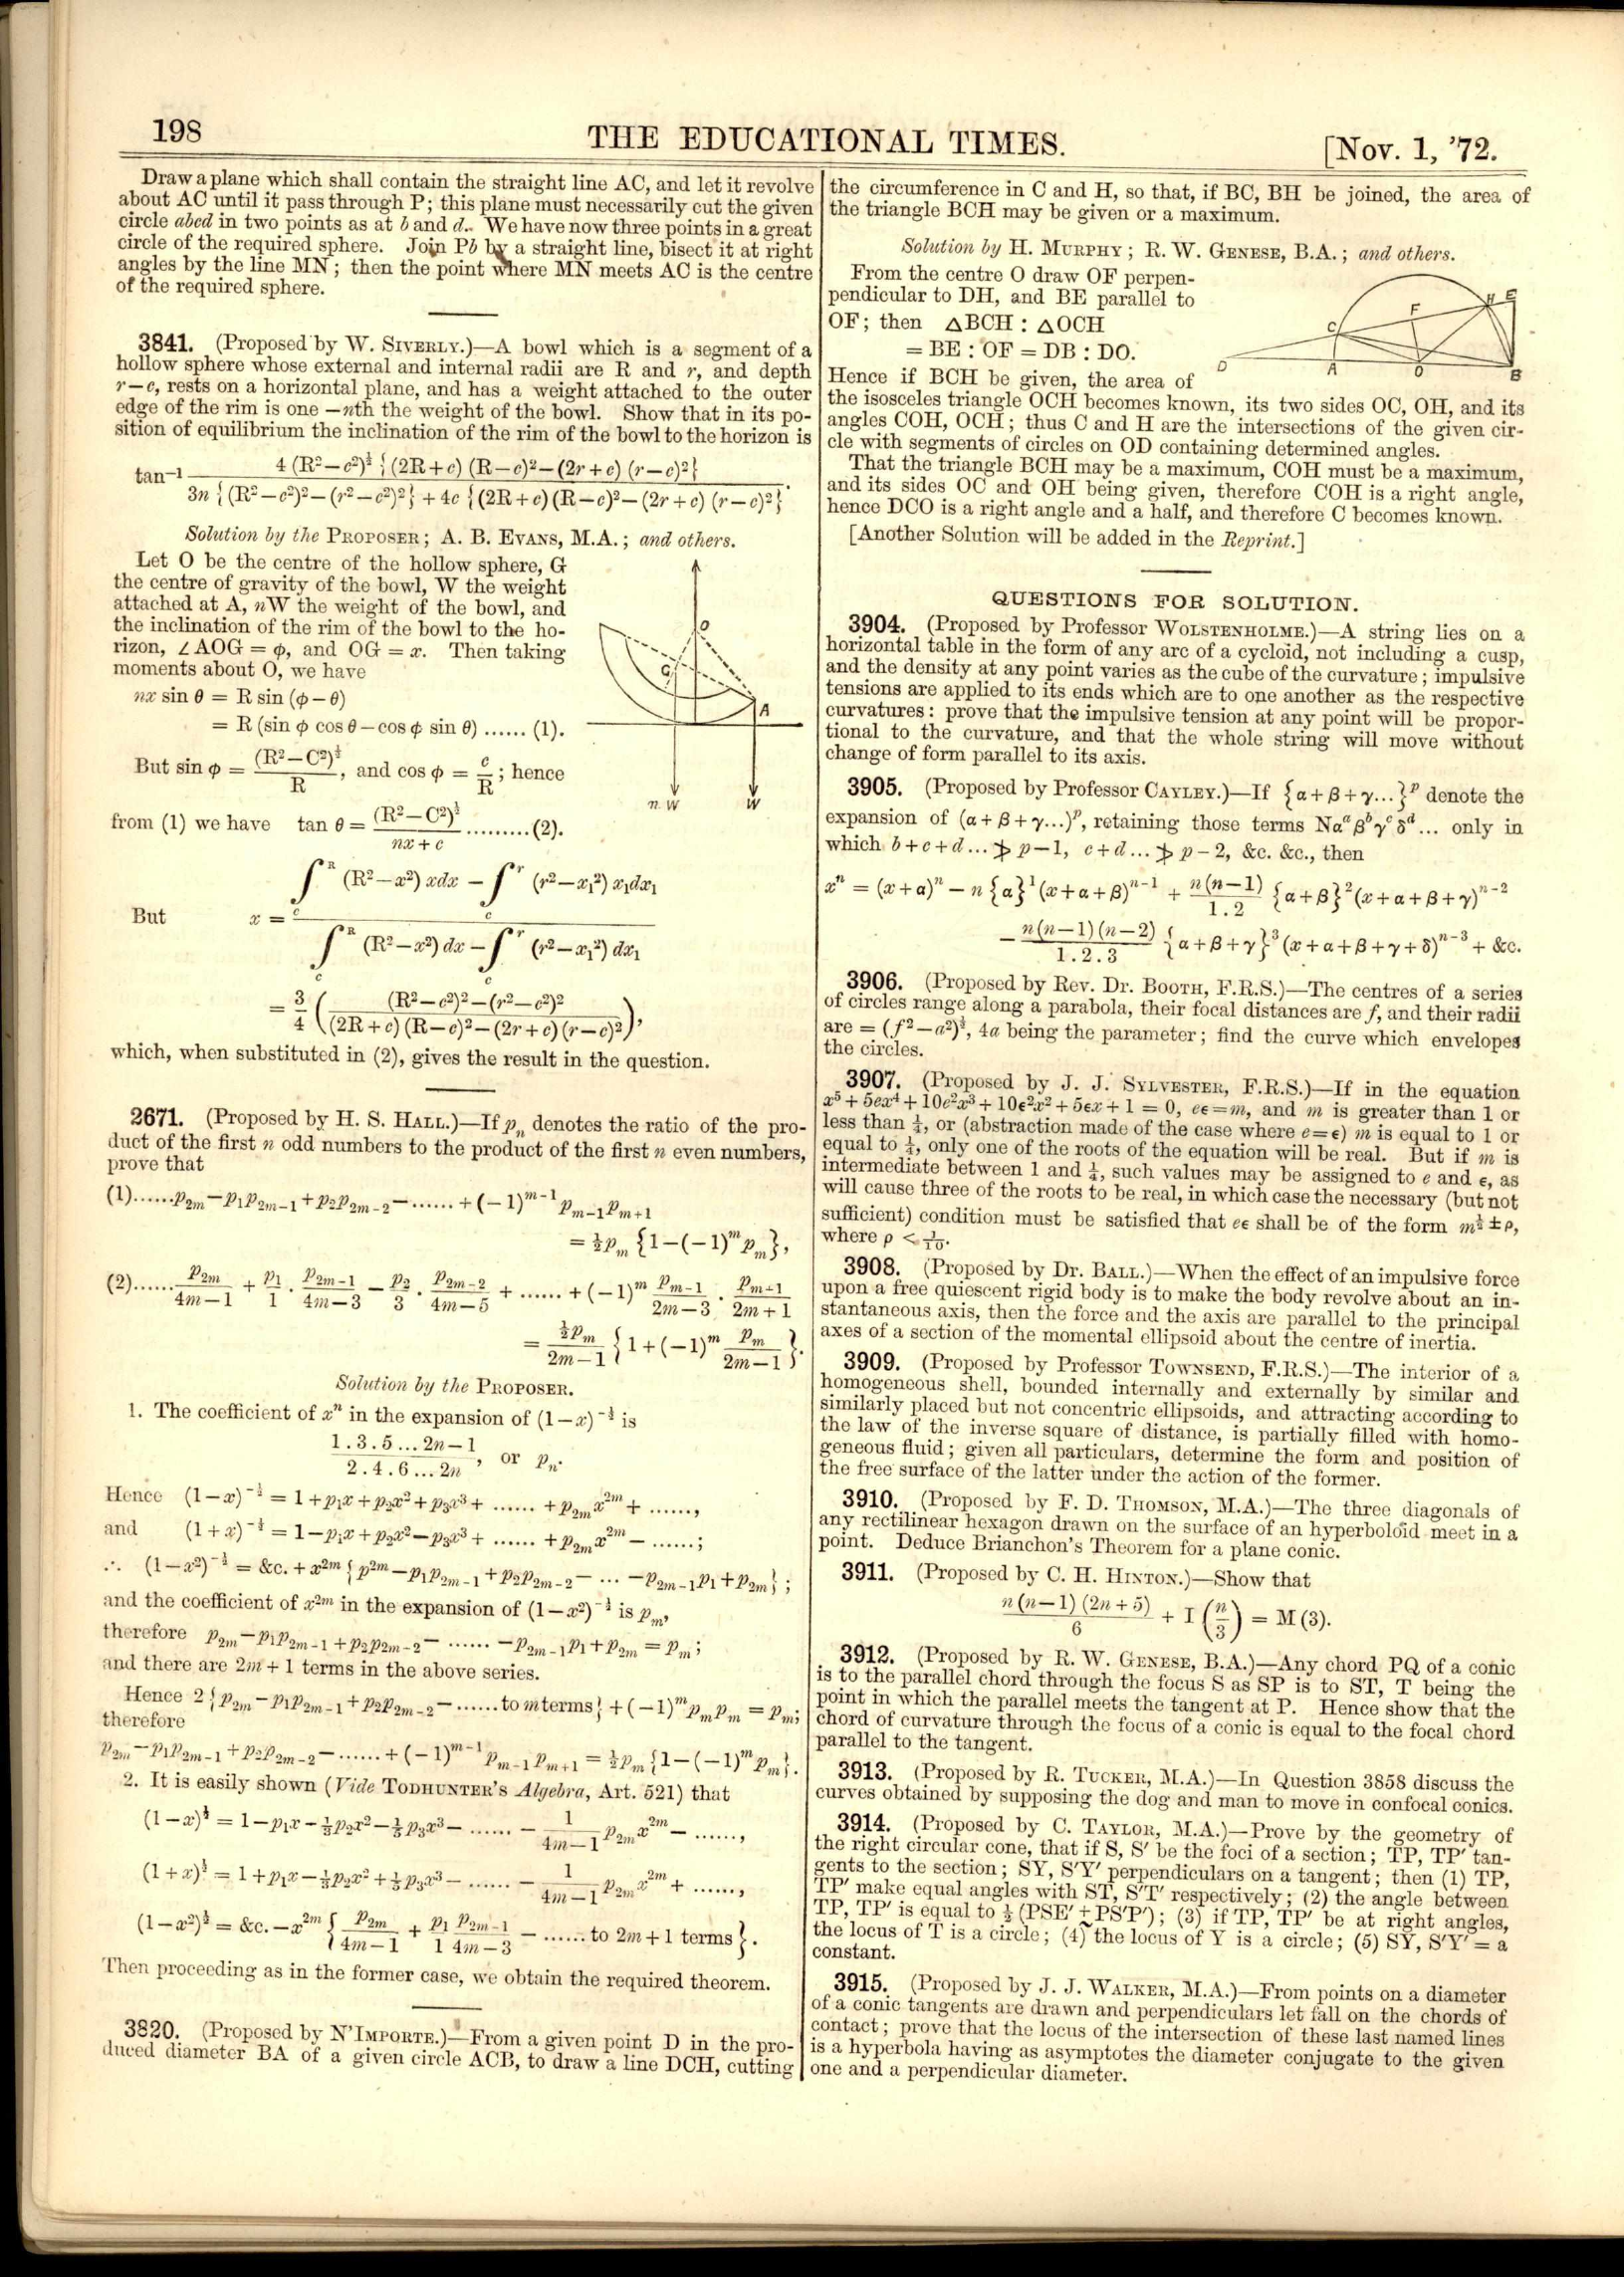 198
THE EDUCATIONAL TIMES.
[Nov. 1, '72.
Draw a plane which shall contain the straight line AC, and let it revolve
about AC until it pass through P; this plane must necessarily cut the given
circle abcd in two points as at b and d. We have now three points in a great
circle of the required sphere. Join Pb by a straight line, bisect it at right
angles by the line MN; then the point where MN meets AC is the centre
of the required sphere.
3841. (Proposed by W. SIVERLY.)—A bowl which is a segment of a
hollow sphere whose external and internal radii are R and r, and depth
r—c, rests on a horizontal plane, and has a weight attached to the outer
edge of the rim is one —nth the weight of the bowl. Show that in its po-
sition of equilibrium the inclination of the rim of the bowl to the horizon is
tan⁻¹ 4 (R²—c²)^½ {(2R+c) (R—c)²—(2r+c) (r—c)²} / 3n {(R²—c²)²—(r²—c²)²} + 4c {(2R+c) (R—c)²—(2r+c) (r—c)²}.
Solution by the PROPOSER; A. B. EVANS, M.A.; and others.
Let O be the centre of the hollow sphere, G
the centre of gravity of the bowl, W the weight
attached at A, nW the weight of the bowl, and
the inclination of the rim of the bowl to the ho-
rizon, ∠AOG = φ, and OG = x. Then taking
moments about O, we have
nx sin θ = R sin (φ—θ)
= R (sin φ cos θ—cos φ sin θ) ...... (1).
But sin φ = (R²—C²)^½ / R, and cos φ = c/R; hence
from (1) we have tan θ = (R²—C²)^½ / nx+c .........(2).
O
G
A
n W
W
But x = ∫_c^R (R²—x²) xdx — ∫_c^r (r²—x₁²) x₁dx₁ / ∫_c^R (R²—x²) dx — ∫_c^r (r²—x₁²) dx₁
= 3/4 ( (R²—c²)²—(r²—c²)² / (2R+c) (R—c)²—(2r+c) (r—c)² ),
which, when substituted in (2), gives the result in the question.
2671. (Proposed by H. S. HALL.)—If pₙ denotes the ratio of the pro-
duct of the first n odd numbers to the product of the first n even numbers,
prove that
(1)......p_{2m}—p₁p_{2m-1}+p₂p_{2m-2}—...... +(—1)^{m-1} p_{m-1}p_{m+1}
= ½p_m {1—(—1)^m p_m},
(2)...... p_{2m}/4m—1 + p₁/1 . p_{2m-1}/4m—3 — p₂/3 . p_{2m-2}/4m—5 + ...... +(—1)^m p_{m-1}/2m—3 . p_{m+1}/2m+1
= ½p_m/2m—1 {1+(—1)^m p_m/2m—1}.
Solution by the PROPOSER.
1. The coefficient of xⁿ in the expansion of (1—x)^{-½} is
1.3.5...2n—1 / 2.4.6...2n, or pₙ.
Hence (1—x)^{-½} = 1+p₁x+p₂x²+p₃x³+ ...... +p_{2m}x^{2m}+ ......,
and (1+x)^{-½} = 1—p₁x+p₂x²—p₃x³+ ...... +p_{2m}x^{2m}— ......;
∴ (1—x²)^{-½} = &c. + x^{2m} {p^{2m}—p₁p_{2m-1}+p₂p_{2m-2}— ... —p_{2m-1}p₁+p_{2m}};
and the coefficient of x^{2m} in the expansion of (1—x²)^{-½} is p_m,
therefore p_{2m}—p₁p_{2m-1}+p₂p_{2m-2}— ...... —p_{2m-1}p₁+p_{2m} = p_m;
and there are 2m+1 terms in the above series.
Hence 2{p_{2m}—p₁p_{2m-1}+p₂p_{2m-2}—......to m terms}+(—1)^m p_m p_m = p_m;
therefore
p_{2m}—p₁p_{2m-1}+p₂p_{2m-2}—......+(—1)^{m-1} p_{m-1}p_{m+1} = ½p_m{1—(—1)^m p_m}.
2. It is easily shown (Vide TODHUNTER'S Algebra, Art. 521) that
(1—x)^½ = 1—p₁x—⅓p₂x²—⅕p₃x³— ...... — 1/4m—1 p_{2m}x^{2m}— ......,
(1+x)^½ = 1+p₁x—⅓p₂x²+⅕p₃x³— ...... — 1/4m—1 p_{2m}x^{2m}+ ......,
(1—x²)^½ = &c.—x^{2m} {p_{2m}/4m—1 + p₁/1 p_{2m-1}/4m—3 — ......to 2m+1 terms}.
Then proceeding as in the former case, we obtain the required theorem.
3820. (Proposed by N'IMPORTE.)—From a given point D in the pro-
duced diameter BA of a given circle ACB, to draw a line DCH, cutting
the circumference in C and H, so that, if BC, BH be joined, the area of
the triangle BCH may be given or a maximum.
Solution by H. MURPHY; R. W. GENESE, B.A.; and others.
From the centre O draw OF perpen-
pendicular to DH, and BE parallel to
OF; then △BCH : △OCH
= BE : OF = DB : DO.
D
C
A
F
O
H
E
B
Hence if BCH be given, the area of
the isosceles triangle OCH becomes known, its two sides OC, OH, and its
angles COH, OCH; thus C and H are the intersections of the given cir-
cle with segments of circles on OD containing determined angles.
That the triangle BCH may be a maximum, COH must be a maximum,
and its sides OC and OH being given, therefore COH is a right angle,
hence DCO is a right angle and a half, and therefore C becomes known.
[Another Solution will be added in the Reprint.]
QUESTIONS FOR SOLUTION.
3904. (Proposed by Professor WOLSTENHOLME.)—A string lies on a
horizontal table in the form of any arc of a cycloid, not including a cusp,
and the density at any point varies as the cube of the curvature; impulsive
tensions are applied to its ends which are to one another as the respective
curvatures: prove that the impulsive tension at any point will be propor-
tional to the curvature, and that the whole string will move without
change of form parallel to its axis.
3905. (Proposed by Professor CAYLEY.)—If {α+β+γ...}^p denote the
expansion of (α+β+γ...)^p, retaining those terms Nα^a β^b γ^c δ^d... only in
which b+c+d... ≯ p—1, c+d... ≯ p—2, &c. &c., then
xⁿ = (x+α)ⁿ — n{α}¹(x+α+β)^{n-1} + n(n—1)/1.2 {α+β}²(x+α+β+γ)^{n-2}
— n(n—1)(n—2)/1.2.3 {α+β+γ}³(x+α+β+γ+δ)^{n-3} + &c.
3906. (Proposed by Rev. Dr. BOOTH, F.R.S.)—The centres of a series
of circles range along a parabola, their focal distances are f, and their radii
are = (f²—a²)^½, 4a being the parameter; find the curve which envelopes
the circles.
3907. (Proposed by J. J. SYLVESTER, F.R.S.)—If in the equation
x⁵+5ex⁴+10e²x³+10ϵ²x²+5ϵx+1 = 0, eϵ=m, and m is greater than 1 or
less than ¼, or (abstraction made of the case where e=ϵ) m is equal to 1 or
equal to ¼, only one of the roots of the equation will be real. But if m is
intermediate between 1 and ¼, such values may be assigned to e and ϵ, as
will cause three of the roots to be real, in which case the necessary (but not
sufficient) condition must be satisfied that eϵ shall be of the form m^½ ± ρ,
where ρ < 1/10.
3908. (Proposed by Dr. BALL.)—When the effect of an impulsive force
upon a free quiescent rigid body is to make the body revolve about an in-
stantaneous axis, then the force and the axis are parallel to the principal
axes of a section of the momental ellipsoid about the centre of inertia.
3909. (Proposed by Professor TOWNSEND, F.R.S.)—The interior of a
homogeneous shell, bounded internally and externally by similar and
similarly placed but not concentric ellipsoids, and attracting according to
the law of the inverse square of distance, is partially filled with homo-
geneous fluid; given all particulars, determine the form and position of
the free surface of the latter under the action of the former.
3910. (Proposed by F. D. THOMSON, M.A.)—The three diagonals of
any rectilinear hexagon drawn on the surface of an hyperboloid meet in a
point. Deduce Brianchon's Theorem for a plane conic.
3911. (Proposed by C. H. HINTON.)—Show that
n(n—1)(2n+5)/6 + I(n/3) = M(3).
3912. (Proposed by R. W. GENESE, B.A.)—Any chord PQ of a conic
is to the parallel chord through the focus S as SP is to ST, T being the
point in which the parallel meets the tangent at P. Hence show that the
chord of curvature through the focus of a conic is equal to the focal chord
parallel to the tangent.
3913. (Proposed by R. TUCKER, M.A.)—In Question 3858 discuss the
curves obtained by supposing the dog and man to move in confocal conics.
3914. (Proposed by C. TAYLOR, M.A.)—Prove by the geometry of
the right circular cone, that if S, S' be the foci of a section; TP, TP' tan-
gents to the section; SY, S'Y' perpendiculars on a tangent; then (1) TP,
TP' make equal angles with ST, S'T' respectively; (2) the angle between
TP, TP' is equal to ½ (PSE' ± PS'P'); (3) if TP, TP' be at right angles,
the locus of T is a circle; (4) the locus of Y is a circle; (5) SY, S'Y' = a
constant.
3915. (Proposed by J. J. WALKER, M.A.)—From points on a diameter
of a conic tangents are drawn and perpendiculars let fall on the chords of
contact; prove that the locus of the intersection of these last named lines
is a hyperbola having as asymptotes the diameter conjugate to the given
one and a perpendicular diameter.